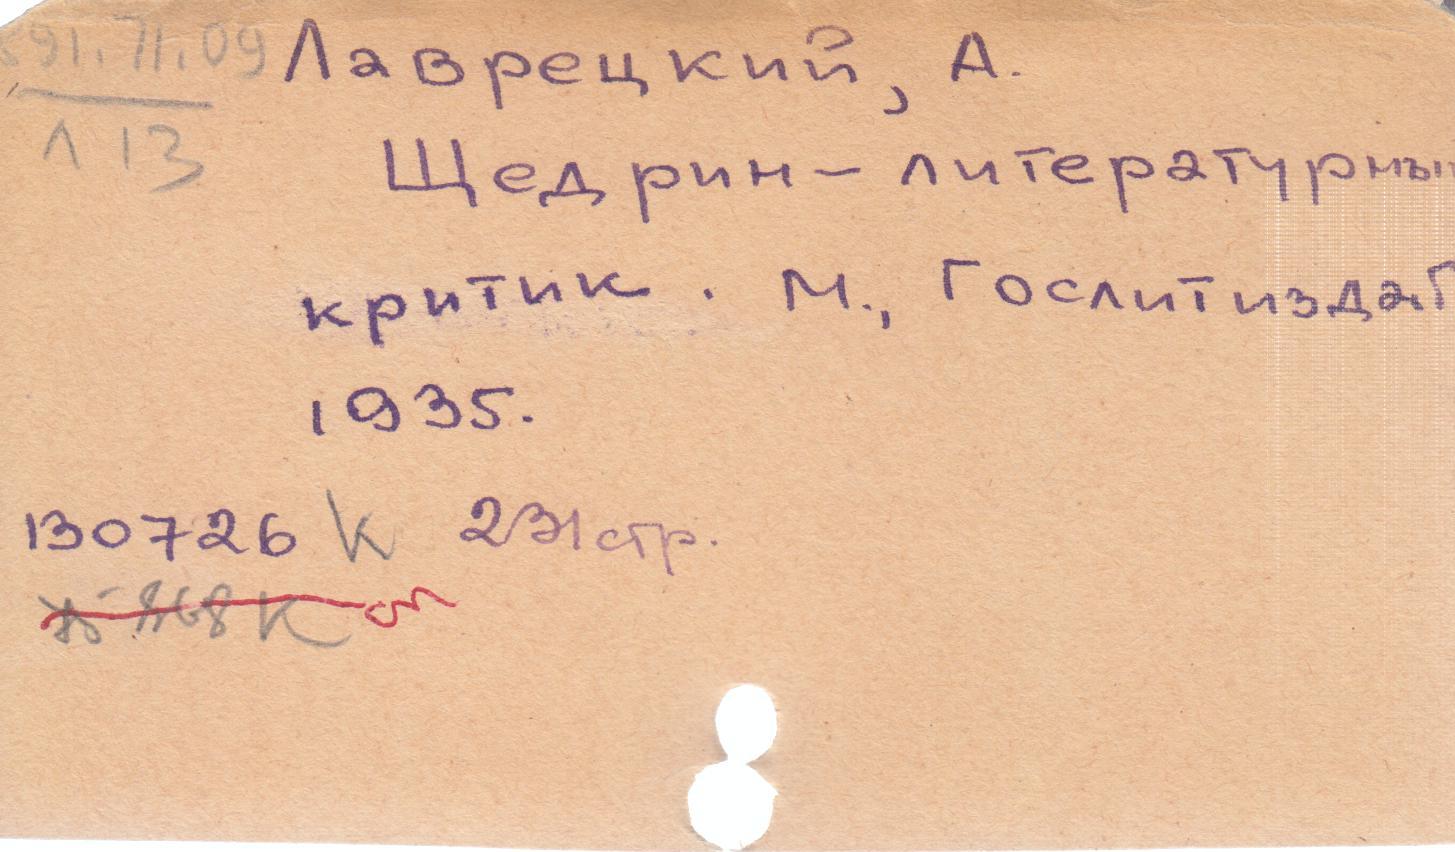 891.71.09 Лаврецкий, А.
Л 13
Щедрин – литературный
критик. М., Гослитиздат
1935.
130726 К 231 стр.